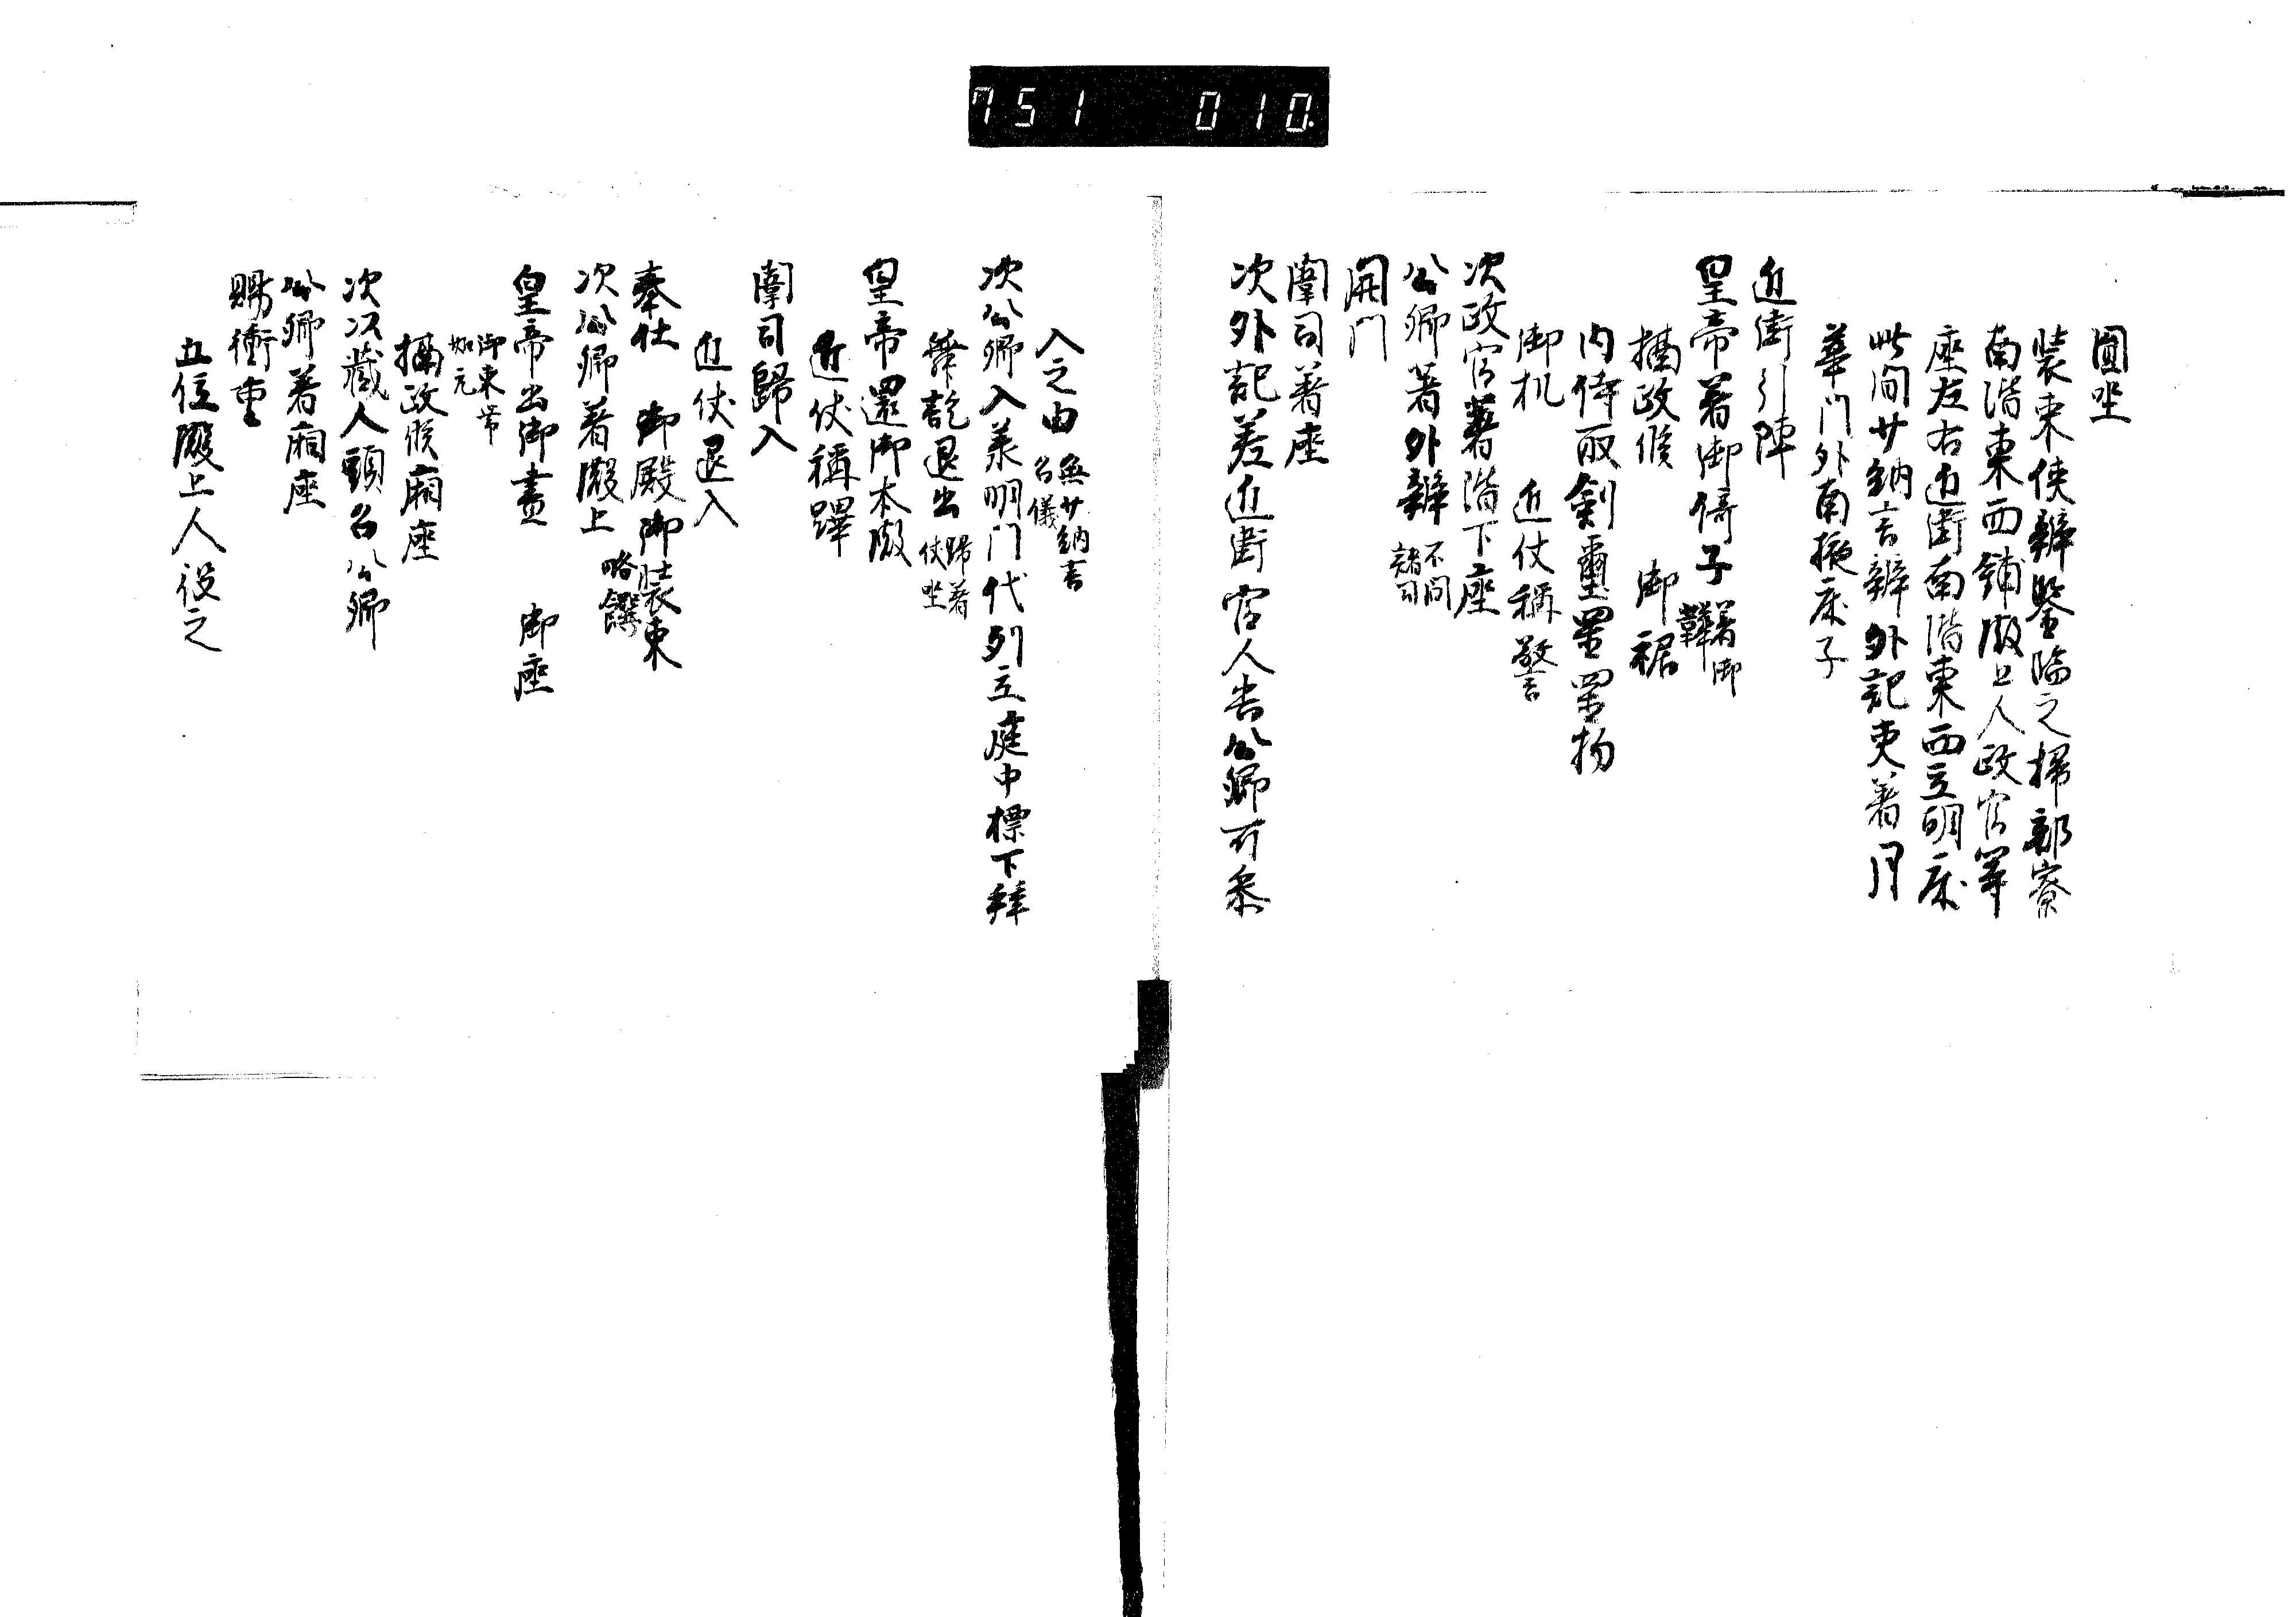 751 010
圓坐
裝束使辨鑒臨之掃部寮
南階東西鋪殿上人政官等
座左右近衛南階東西立明床
此間少納言辨外記吏着月
華門外南掖床子
近衛引陣
皇帝着御倚子 着御鞾
攝政候 御裾
内侍取劍璽置置物
御机 近仗稱警
次政官著階下座
公卿著外辨 不問諸司
開門
闈司著座
次外記差近衛官人告公卿可參
入之由 無少納言召儀
次公卿入承明門代列立庭中標下拜
舞訖退出 歸著仗坐
皇帝還御本殿
近仗稱蹕
闈司歸入
近仗退入
奉仕 御殿御裝束
次公卿着殿上 略饌
皇帝出御晝 御座
御束帶如元
攝政候廂座
次以藏人頭召公卿
公卿着廂座
賜衝重
五位殿上人役之